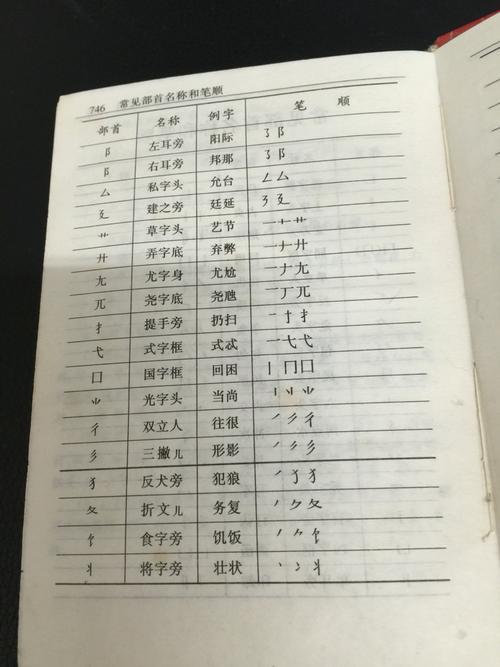 746 常见部首名称和笔顺
部首 名称 例字 笔顺
阝 左耳旁 阳际 ㇌阝
阝 右耳旁 邦那 ㇌阝
厶 私字头 允台 𠃋厶
廴 建之旁 廷延 ㇋廴
艹 草字头 艺节 一十艹
廾 弄字底 弃弊 一ナ廾
尢 尤字身 尤尬 一ナ尢
兀 尧字底 尧虺 一丆兀
扌 提手旁 扔扫 一十扌
弋 式字框 式忒 一七弋
囗 国字框 回困 丨冂囗
⺌ 光字头 当尚 丨⺌
彳 双立人 往很 ノ彳
彡 三撇儿 形影 ノ彡
犭 反犬旁 犯狼 ノ犭
夂 折文儿 务复 ノク夂
饣 食字旁 饥饭 ノ𠂊饣
丬 将字旁 壮状 丶冫丬